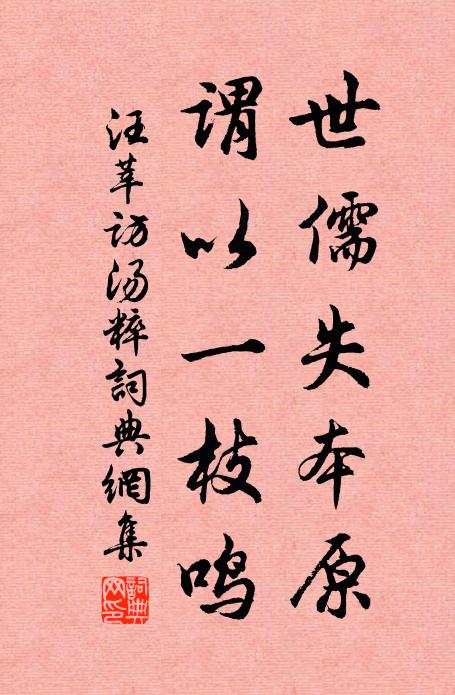 世儒失本原
谓以一枝鸣
汪莘访汤粹詞典網集
詞典網印